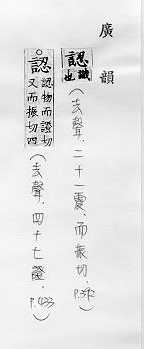 廣韻
認 識也 (去聲、二十一震、而振切、P.392)
認 認物而證切又而振切四 (去聲、四十七證、P.433)